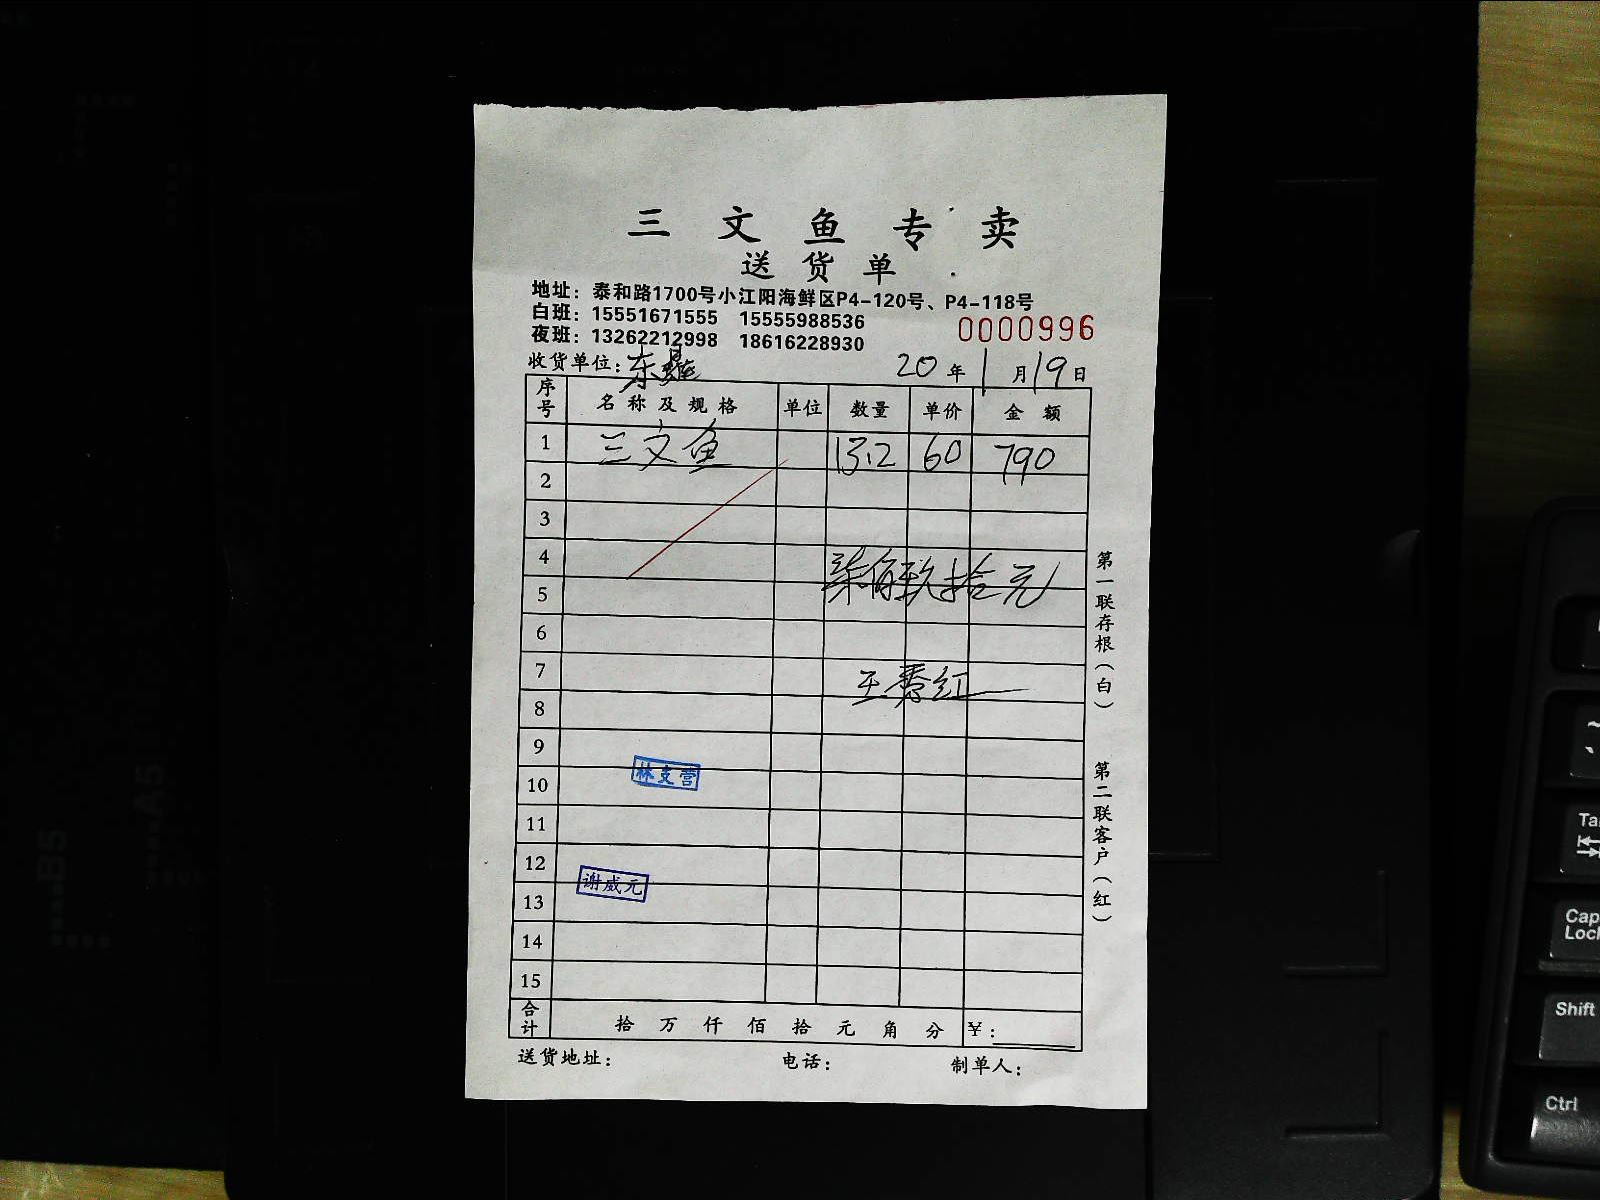 三文鱼专卖
送货单
地址：泰和路1700号小江阳海鲜区P4-120号、P4-118号
白班：15551671555 15555988536
夜班：13262212998 18616228930
0000996
收货单位：东 20年1月19日
序号 名称及规格 单位 数量 单价 金额
1 三文鱼 13.2 60 790
2
3
4
柒佰玖拾元
5
6
7
王秀红
8
9
林支营
10
11
12
谢威元
13
14
15
合计 拾 万 仟 佰 拾 元 角 分 ¥：
送货地址： 电话： 制单人：
第一联存根（白）
第二联客户（红）
B5
A5
Tab
Caps Lock
Shift
Ctrl